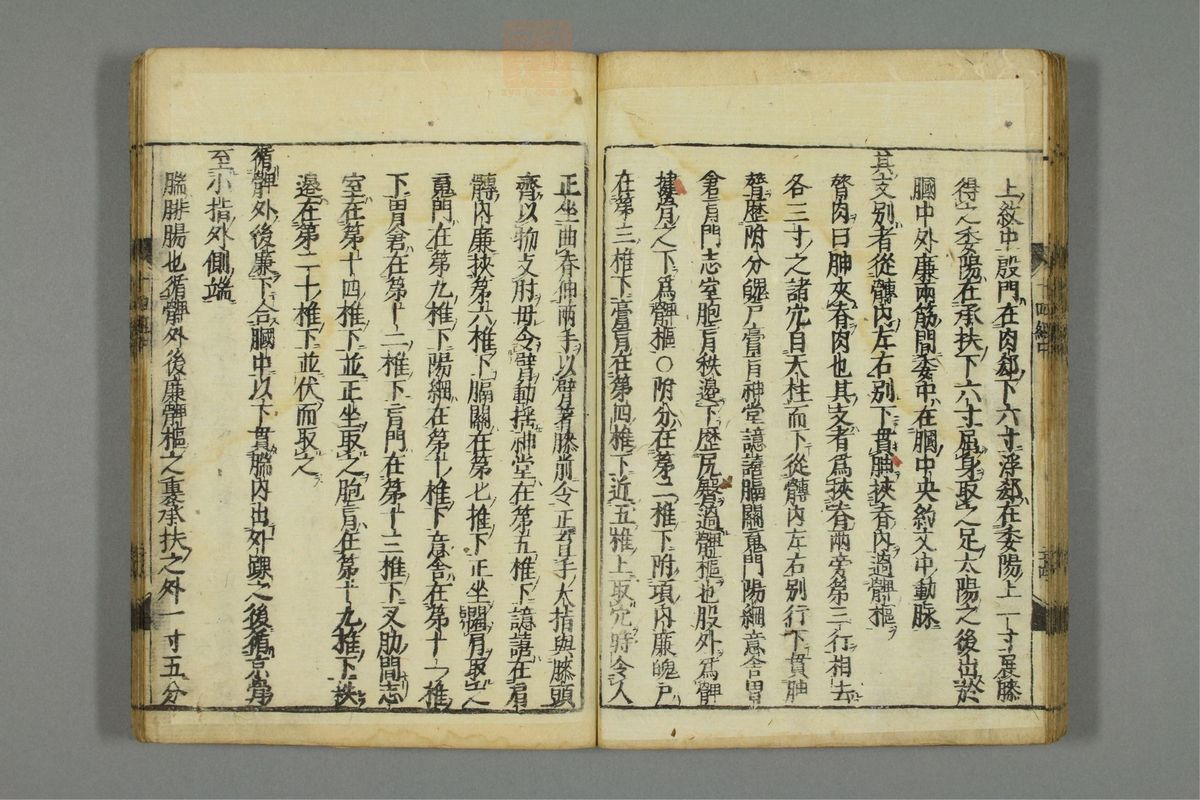 上紋中殷門在肉郄下六寸浮郄在委陽上一寸展膝
得之委陽在承扶下六寸屈身取之足太陽之後出於
膕中外廉兩筋間委中在膕中央約文中動脉
其支別者從髆內左右別下貫胂挾脊內過髀樞
膂肉曰胂夾脊肉也其支者爲挾脊兩旁第三行相去
各三寸之諸穴自天柱而下從髆內左右別行下貫胂
膂歷附分魄戶膏肓神堂譩譆膈關魂門陽綱意舍胃
倉肓門志室胞肓秩邊下歷尻臀過髀樞也股外爲髀
揵骨之下爲髀樞〇附分在第二椎下附項內廉魄戶
在第三椎下膏肓在第四椎下近五椎上取穴時令人
正坐曲脊伸兩手以臂著膝前令正直手大指與膝頭
齊以物支肘毋令臂動搖神堂在第五椎下譩譆在肩
髆內廉挾第六椎下膈關在第七椎下正坐開肩取之
魂門在第九椎下陽綱在第十椎下意舍在第十一椎
下胃倉在第十二椎下肓門在第十三椎下叉肋間志
室在第十四椎下並正坐取之胞肓在第十九椎下挾
邊在第二十椎下並伏而取之
循髀外後廉下合膕中以下貫腨內出外踝之後循京骨
至小指外側端
腨腓腸也循髀外後廉髀樞之裏承扶之外一寸五分